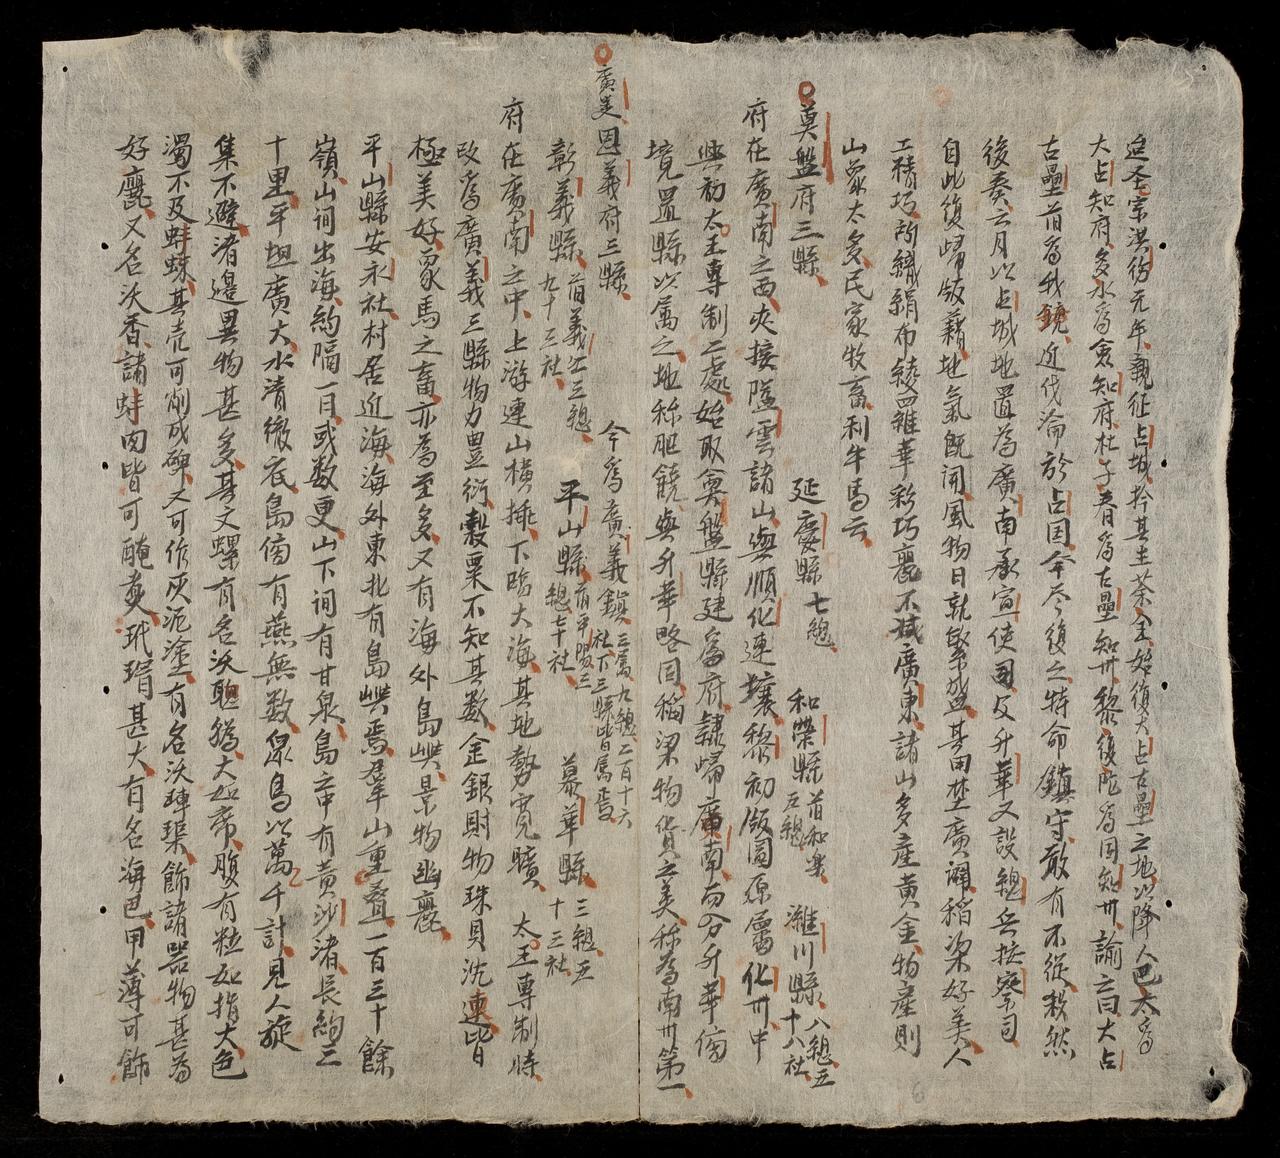 聖宗洪德元年親征占城擒其主茶全始復大占古壘之地以降人巴太為
大占知府多水為僉知府杜子春為古壘知州黎倚陀為同知州諭曰大占
古壘前為我境近代淪於占国今尽復之特命鎮守敢有不從殺然
後奏六月以占城地置為廣南承宣使司及升華又設總兵按察司
自此復歸版籍地氣既開風物日就繁盛其田埜廣闊稻梁好美人
工精巧所織絹布綾羅華彩巧麗不減廣東諸山多產黃金物產則
山象太多民家牧畜利牛馬云
奠盤府三縣 延慶縣七總 和榮縣前和樂五總 濰川縣八總五十八社
府在廣南之西夾接隘雲諸山與順化連壤黎初版圖原屬化州中
興初太王專制二處始取奠盤縣建為府隸歸廣南而分升華傍
境置縣以属之地称肥饒與升華略同稲梁物貨之美称為南州第一
廣美思義府三縣 今為廣義鎮三属九總二百十六社下三縣皆属焉
彰義縣前義江三總九十三社 平山縣前平陽三總七十社 慕華縣三總五十三社
府在廣南之中上游連山橫排下臨大海其地勢寬曠 太王專制時
改為廣義三縣物力豊衍穀粟不知其数金銀財物珠貝沈速皆
極美好象馬之畜亦為至多又有海外島嶼景物幽麗
平山縣安永社村居近海海外東北有島嶼焉羣山重叠一百三十餘
嶺山间出海約隔一日或数更山下间有甘泉島中有黄沙渚長約三
十里平坦廣大水清徹底島傍有燕無数泉鳥以萬千計見人旋
集不避渚邊異物甚多其文螺有名沃聰鵶大如席腹有粒如指大色
濁不及蚌蛛其壳可削成碑又可作灰泥塗有名沃硨磲飾諸器物甚為
好麗又名沃香諸蚌肉皆可醃煑玳瑁甚大有名海巴甲薄可飾